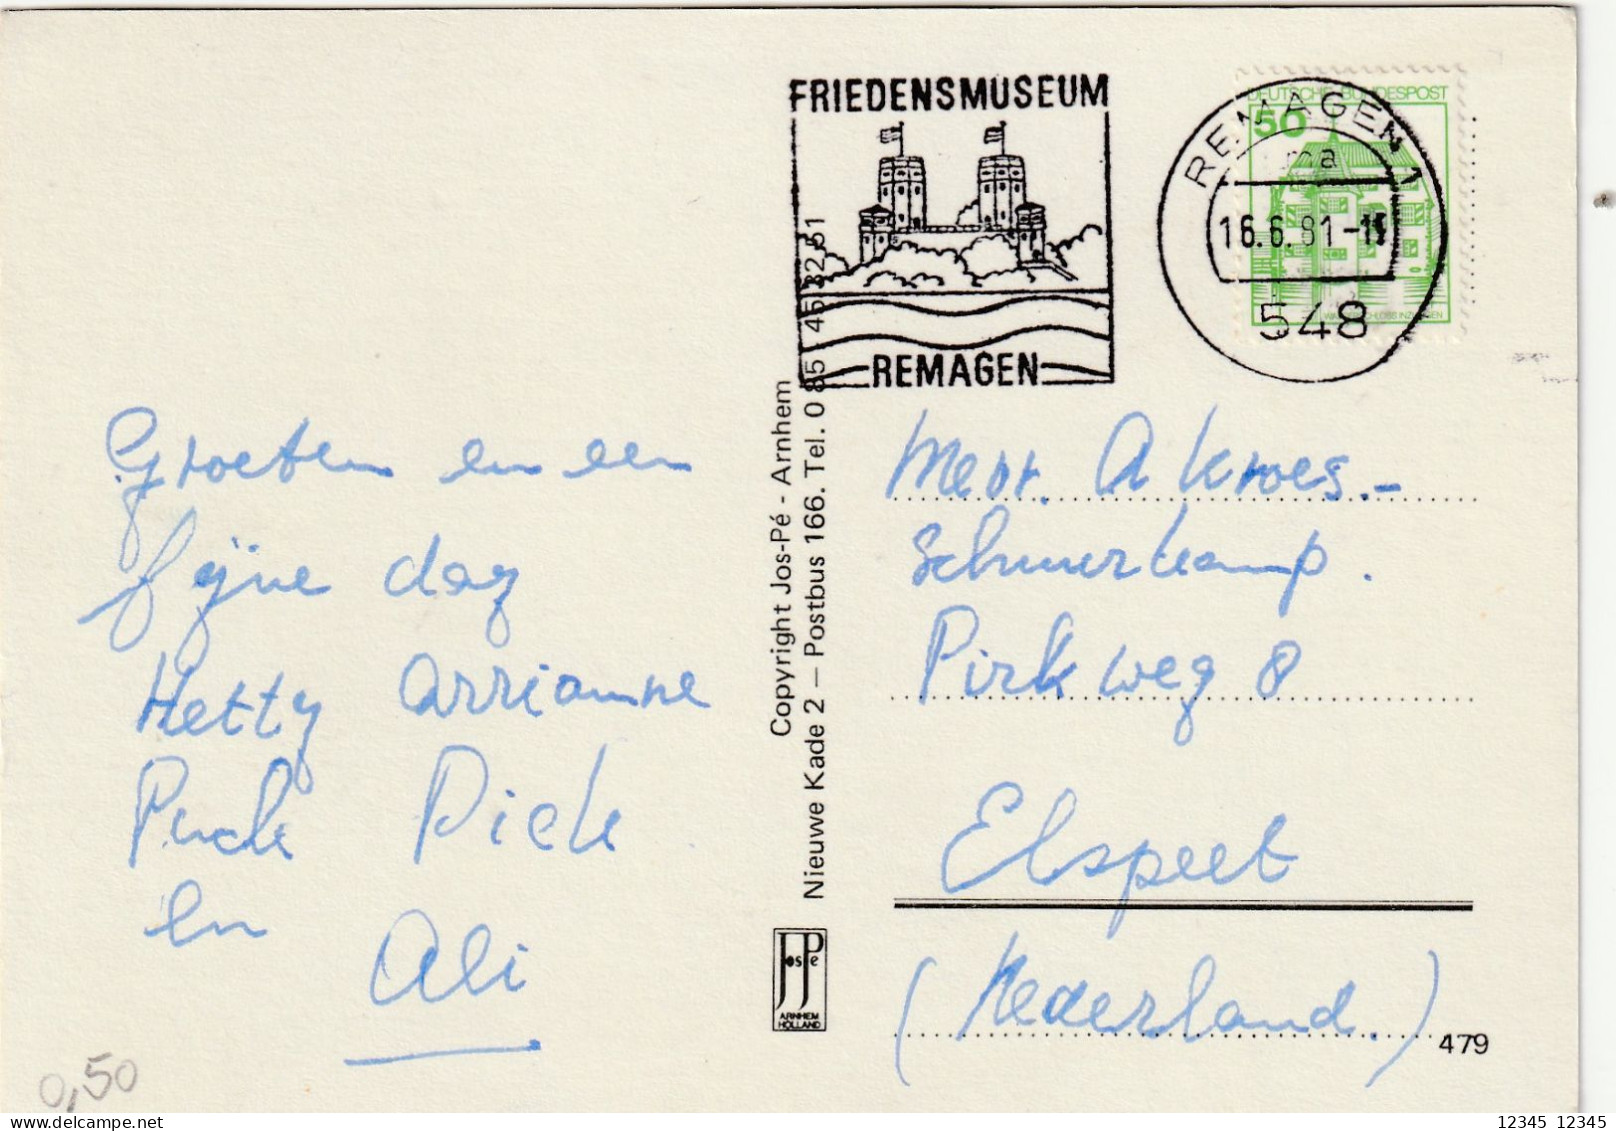 FRIEDENSMUSEUM
REMAGEN
REMAGEN 1
ma
16.6.81-11
548
DEUTSCHE BUNDESPOST
50
Groeten en een
fijne dag
Hetty Arrianne
Puck Dick
en
Ali
0,50
Copyright Jos-Pé - Arnhem
Nieuwe Kade 2 – Postbus 166. Tel. 085 45 32 51
JosPe
ARNHEM
HOLLAND
Mevr. A Kroes.-
Schuurkamp.
Pirkweg 8
Elspeet
(Nederland.)
479
12345 12345